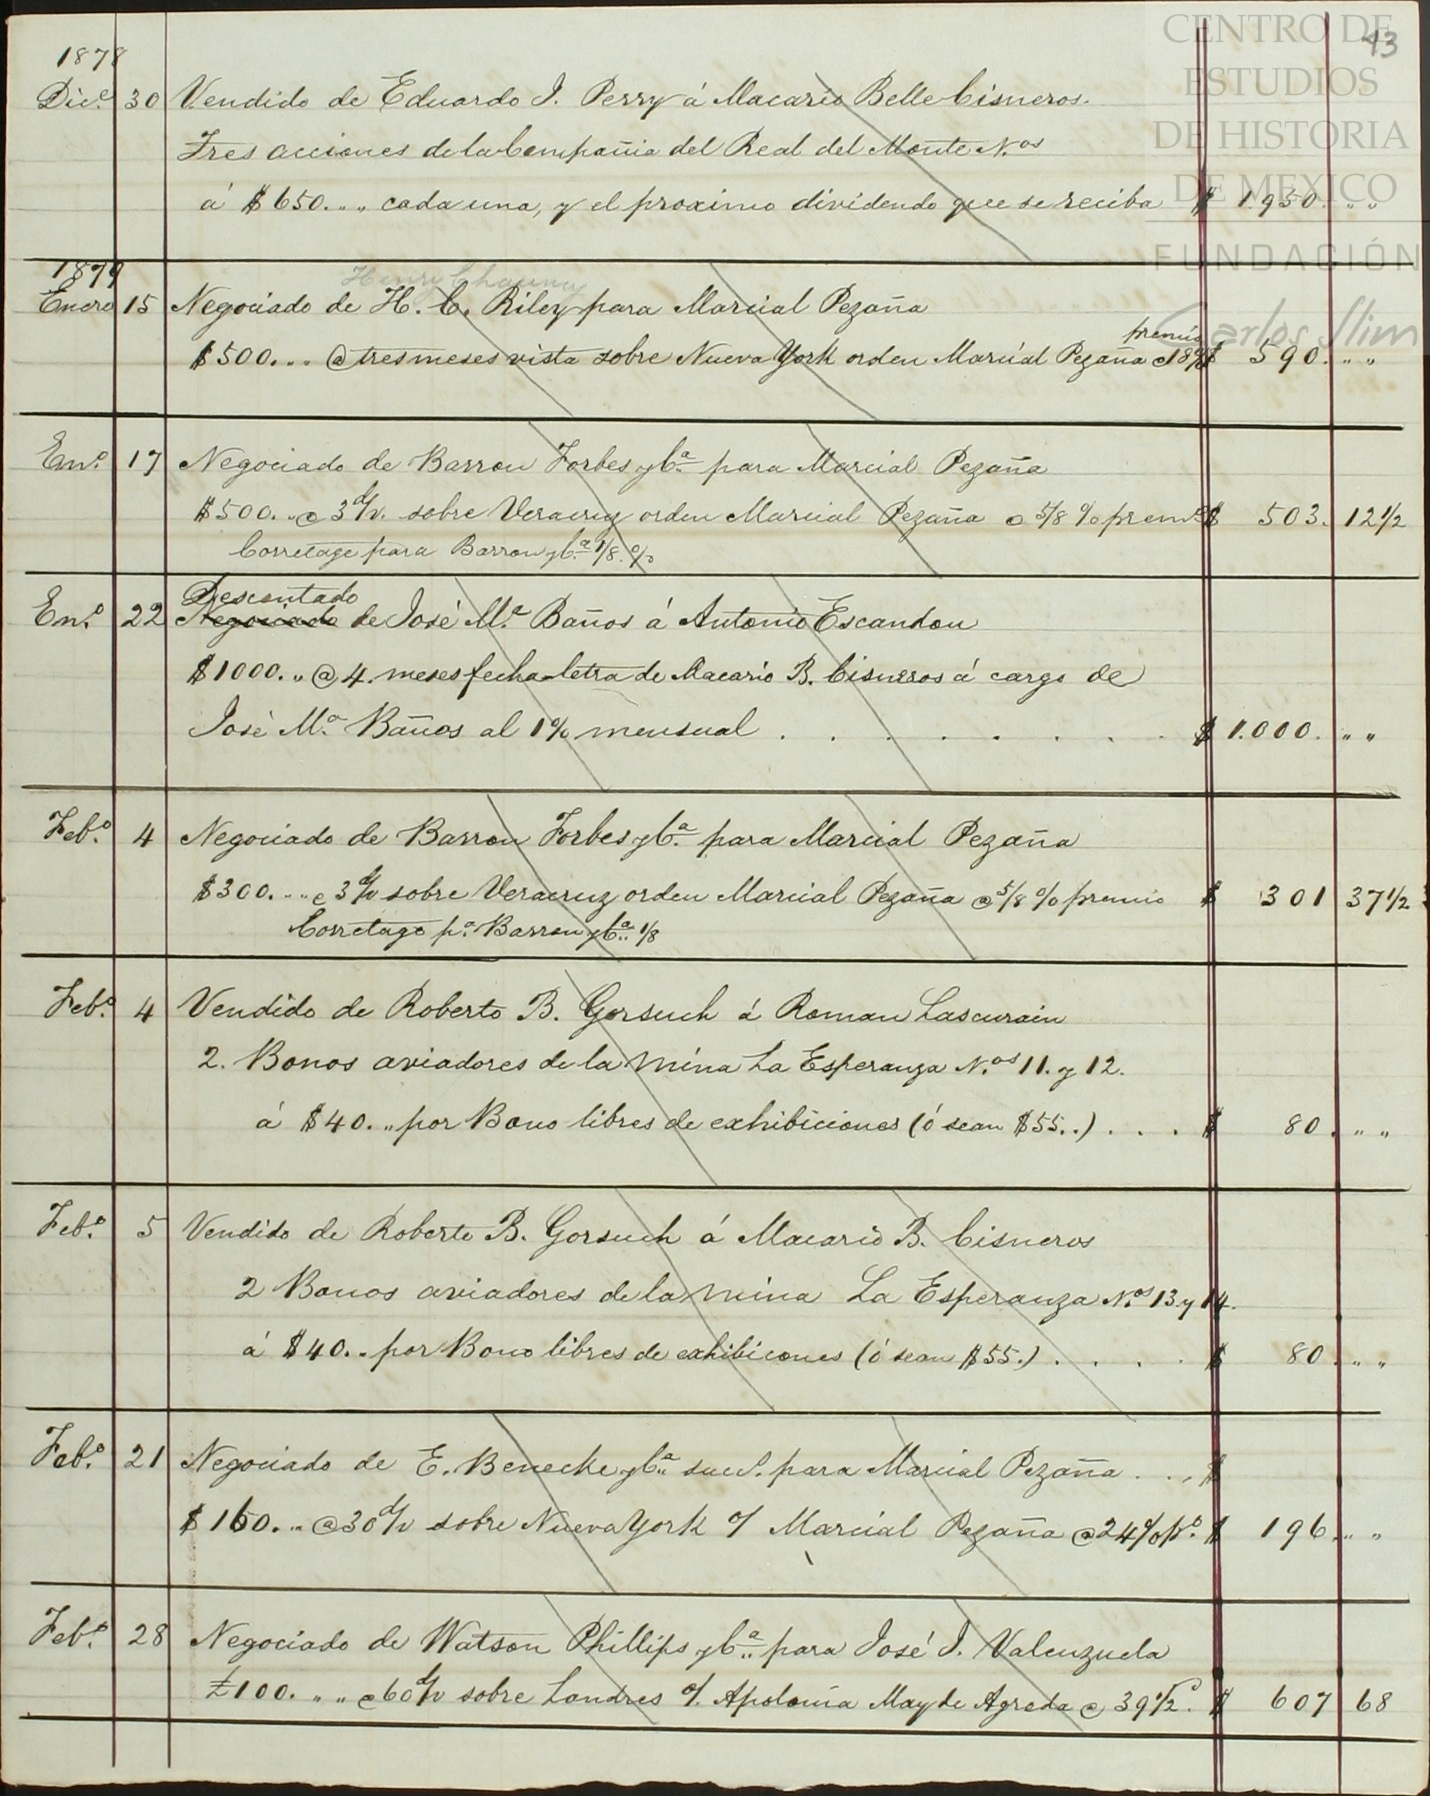 CENTRO DE
ESTUDIOS
DE HISTORIA
DE MEXICO
FUNDACIÓN
Carlos Slim
43
1878
Dice. 30 Vendido de Eduardo I. Perry á Macario Belle Cisneros.
Tres acciones de la Compañia del Real del Monte N.os
á $650. „ „ cada una, y el proximo dividendo que se reciba $ 1.950. „ „
1879
Enero 15 Negociado de H. C. Riley para Marcial Pezaña
premio
$500. „ „ @ tres meses vista sobre Nueva York orden Marcial Pezaña @ 18% $ 590. „ „
En.o 17 Negociado de Barron Forbes y C.a para Marcial Pezaña
$500. „ @ 3 d/v. sobre Veracruz orden Marcial Pezaña @ 5/8 % prem.o $ 503. 12 1/2
Corretage para Barron y C.a 1/8. %
Descontado
En.o 22 Negociado de José M.a Baños á Antonio Escandon
$1000. „ @ 4. meses fecha letra de Macario B. Cisneros á cargo de
José M.a Baños al 1% mensual . . . . . . . . $ 1.000. „ „
Feb.o 4 Negociado de Barron Forbes y C.a para Marcial Pezaña
$300. „ „ @ 3 d/v sobre Veracruz orden Marcial Pezaña @ 5/8 % premio $ 301 37 1/2
Corretage p.a Barron y C.a 1/8
Feb.o 4 Vendido de Roberto B. Gorsuch á Roman Lascurain
2. Bonos aviadores de la mina La Esperanza N.os 11. y 12.
á $40. „ por Bono libres de exhibiciones (ó sean $55. .) . . . $ 80. „ „
Feb.o 5 Vendido de Roberto B. Gorsuch á Macario B. Cisneros
2 Bonos aviadores de la mina La Esperanza N.os 13 y 14.
á $40. „ por Bono libres de exhibicones (ó sean $55.) . . . . $ 80. „ „
Feb.o 21 Negociado de E. Benecke y C.a suc.s para Marcial Pezaña . . . $
$160. „ @ 30 d/v sobre Nueva York o/ Marcial Pezaña @ 24% p.o $ 196. „ „
Feb.o 28 Negociado de Watson Phillips y C.a para José I. Valenzuela
£100. „ „ @ 60 d/v sobre Londres o/. Apolonia May de Agreda @ 39 1/2. $ 607 68